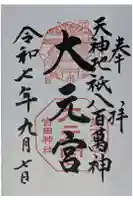 奉拝
天神地祇八百萬神
大元宮
令和七年九月七日
吉田神社